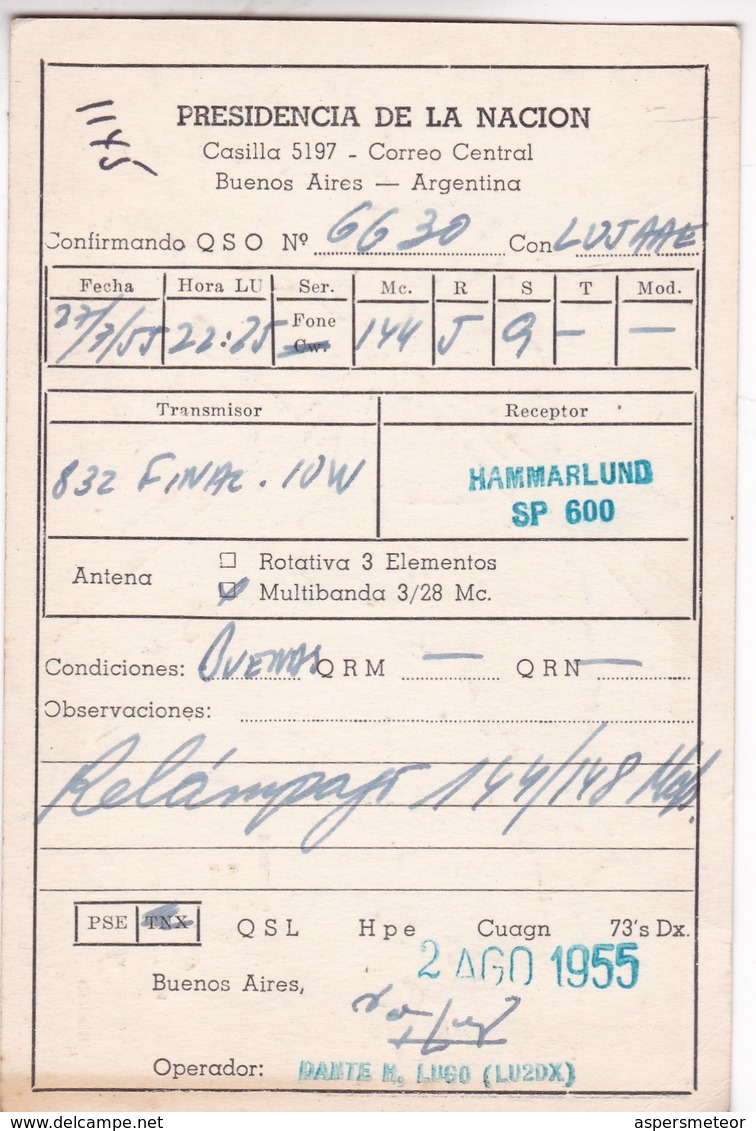 5411
PRESIDENCIA DE LA NACION
Casilla 5197 - Correo Central
Buenos Aires — Argentina
Confirmando QSO Nº 6630 Con LU3AAE
Fecha Hora LU Ser. Mc. R S T Mod.
27/7/55 22:25 Fone Cw. 144 5 9 — —
Transmisor Receptor
832 FINAL. 10W HAMMARLUND
SP 600
Antena Rotativa 3 Elementos
Multibanda 3/28 Mc.
Condiciones: BUENAS QRM — QRN —
Observaciones:
Relámpago 144/148
PSE TNX QSL Hpe Cuagn 73's Dx.
Buenos Aires, 2 AGO 1955
Operador: DANTE N. LUGO (LU2DX)
aspersmeteor